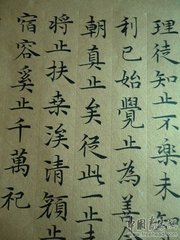 理徒知止不樂未
利已始覺止為善今
朝真止矣從此一止去
將止扶桒涘清顏止
宿容奚止千萬祀